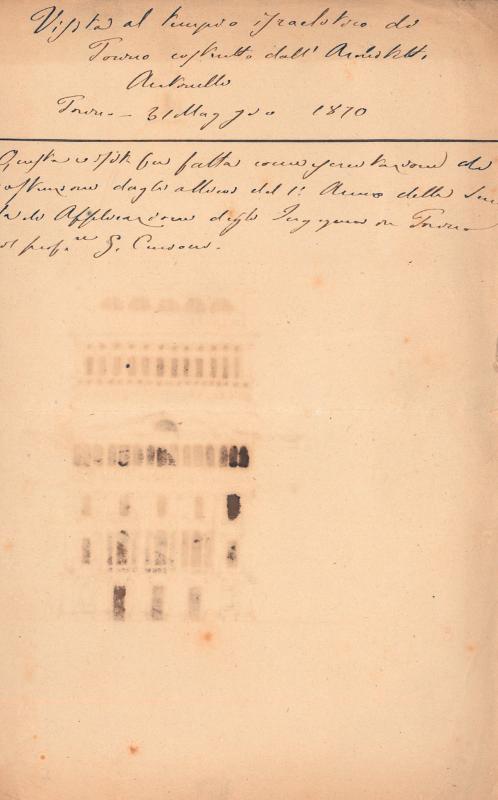 Visita al tempio israelitico di
Torino costrutto dall' Architetto
Antonelli
Torino – 31 Maggio 1870
Questa visita fu fatta come esercitazione di
costruzione dagli allievi del 1° Anno della Scuo
la di Applicazione degli Ingegneri in Torino
col prof.re G. Curioni.